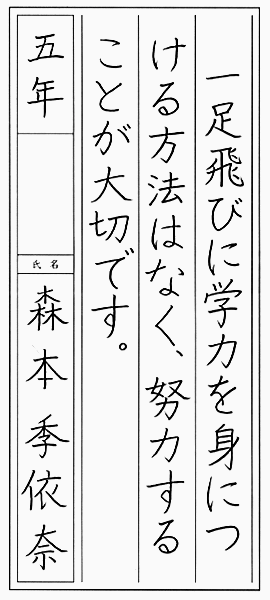 一足飛びに学力を身につ
ける方法はなく、努力する
ことが大切です。
五年
氏名
森本季依奈